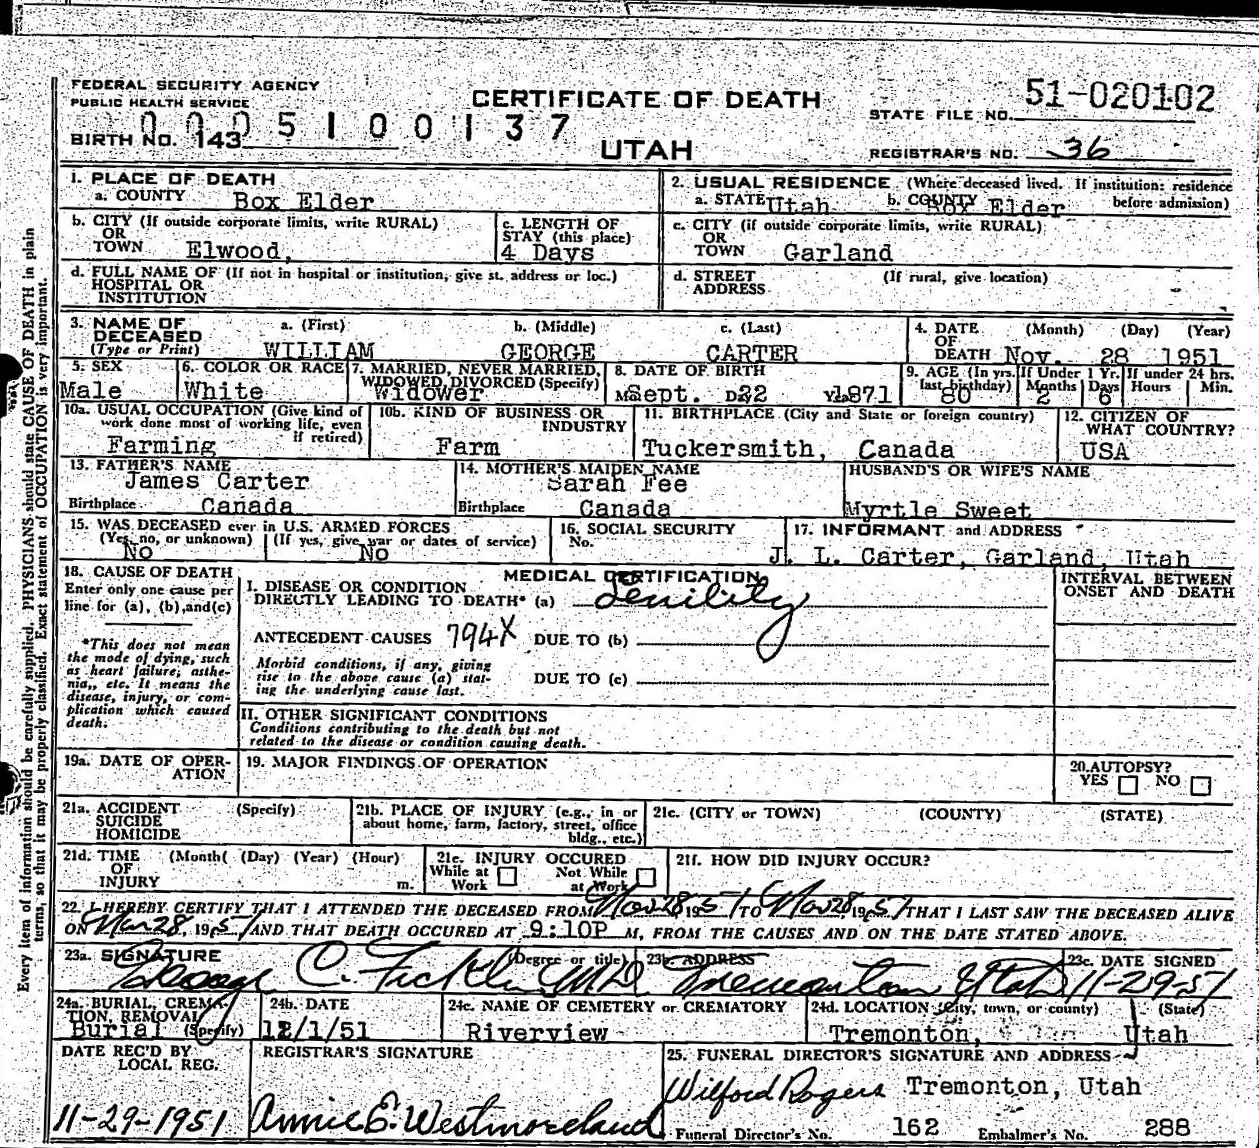 FEDERAL SECURITY AGENCY
PUBLIC HEALTH SERVICE
CERTIFICATE OF DEATH
UTAH
STATE FILE NO. 51-020102
0005100137
BIRTH NO. 143
REGISTRAR'S NO. 36
1. PLACE OF DEATH
a. COUNTY Box Elder
2. USUAL RESIDENCE (Where deceased lived. If institution: residence before admission)
a. STATE Utah b. COUNTY Box Elder
b. CITY (If outside corporate limits, write RURAL) OR TOWN Elwood,
c. LENGTH OF STAY (this place) 4 Days
c. CITY (if outside corporate limits, write RURAL) OR TOWN Garland
d. FULL NAME OF (If not in hospital or institution, give st. address or loc.) HOSPITAL OR INSTITUTION
d. STREET ADDRESS (If rural, give location)
3. NAME OF DECEASED (Type or Print)
a. (First) WILLIAM
b. (Middle) GEORGE
c. (Last) CARTER
4. DATE OF DEATH (Month) (Day) (Year) Nov. 28 1951
5. SEX Male
6. COLOR OR RACE White
7. MARRIED, NEVER MARRIED, WIDOWED, DIVORCED (Specify) Widower
8. DATE OF BIRTH Sept. 22 1871
9. AGE (In yrs. last birthday) 80
If Under 1 Yr. Months 2 Days 6
If under 24 hrs. Hours Min.
10a. USUAL OCCUPATION (Give kind of work done most of working life, even if retired) Farming
10b. KIND OF BUSINESS OR INDUSTRY Farm
11. BIRTHPLACE (City and State or foreign country) Tuckersmith, Canada
12. CITIZEN OF WHAT COUNTRY? USA
13. FATHER'S NAME James Carter
Birthplace Canada
14. MOTHER'S MAIDEN NAME Sarah Fee
Birthplace Canada
HUSBAND'S OR WIFE'S NAME
Myrtle Sweet
15. WAS DECEASED ever in U.S. ARMED FORCES
(Yes, no, or unknown) No
(If yes, give war or dates of service) No
16. SOCIAL SECURITY No.
17. INFORMANT and ADDRESS
J. L. Carter, Garland, Utah
18. CAUSE OF DEATH
Enter only one cause per line for (a), (b), and (c)
*This does not mean the mode of dying, such as heart failure, asthenia, etc. It means the disease, injury, or complication which caused death.
MEDICAL CERTIFICATION
INTERVAL BETWEEN ONSET AND DEATH
I. DISEASE OR CONDITION DIRECTLY LEADING TO DEATH* (a) Senility
ANTECEDENT CAUSES 794X DUE TO (b)
Morbid conditions, if any, giving rise to the above cause (a) stating the underlying cause last.
DUE TO (c)
II. OTHER SIGNIFICANT CONDITIONS
Conditions contributing to the death but not related to the disease or condition causing death.
19a. DATE OF OPERATION
19. MAJOR FINDINGS OF OPERATION
20. AUTOPSY?
YES NO
21a. ACCIDENT SUICIDE HOMICIDE (Specify)
21b. PLACE OF INJURY (e.g., in or about home, farm, factory, street, office bldg., etc.)
21c. (CITY or TOWN) (COUNTY) (STATE)
21d. TIME OF INJURY (Month( (Day) (Year) (Hour) m.
21e. INJURY OCCURED
While at Work Not While at Work
21f. HOW DID INJURY OCCUR?
22. I HEREBY CERTIFY THAT I ATTENDED THE DECEASED FROM Nov 28 1951 TO Nov 28 1951 THAT I LAST SAW THE DECEASED ALIVE
ON Nov 28, 1951 AND THAT DEATH OCCURED AT 9:10P M, FROM THE CAUSES AND ON THE DATE STATED ABOVE.
23a. SIGNATURE (Degree or title) George C. Ficklin M.D.
23b. ADDRESS Tremonton Utah
23c. DATE SIGNED 11-29-51
24a. BURIAL, CREMATION, REMOVAL (Specify) Burial
24b. DATE 12/1/51
24c. NAME OF CEMETERY or CREMATORY Riverview
24d. LOCATION (City, town, or county) (State) Tremonton, Utah
DATE REC'D BY LOCAL REG. 11-29-1951
REGISTRAR'S SIGNATURE
Annie E. Westmoreland
25. FUNERAL DIRECTOR'S SIGNATURE AND ADDRESS
Wilford Rogers Tremonton, Utah
Funeral Director's No. 162 Embalmer's No. 288
Every item of information should be carefully supplied. PHYSICIANS should state CAUSE OF DEATH in plain
terms, so that it may be properly classified. Exact statement of OCCUPATION is very important.